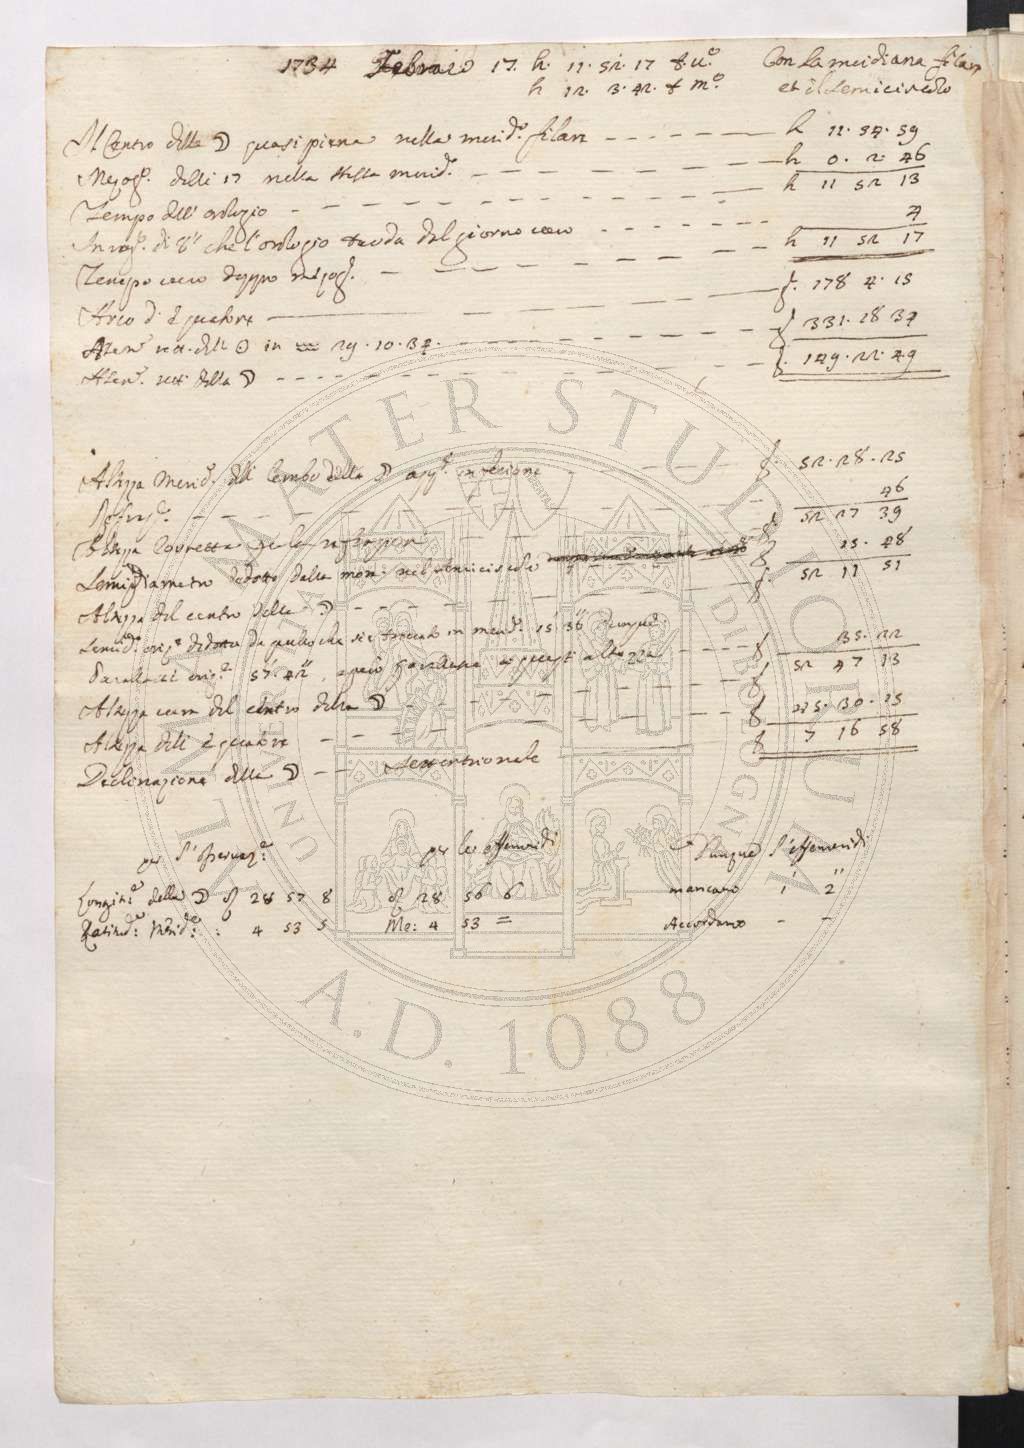 1734 Febraio 17. h. 11. 52. 17 t. u.º Con la meridiana filar
h 12. 3. 42. t m.º et il semicircolo
Il Centro della ☽ quasi piena nella merid.ª filare h 11. 54. 59
Mezog.º delli 17 nella stessa merid.ª h 0. 2. 46
Tempo dell' orologio h 11 52 13
In rag.e di 8" che l'orologio tarda dal giorno vero 4
Tempo vero doppo mezog.º h 11 52 17
Arco d' Equatore g. 178 4. 15
Asens.e retta dell ☉ in ♒ 29. 10. 34. g 331. 18 34
Asens.e rett della ☽ g. 149. 22. 49
Altezza Merid.ª del lembo della ☽ app.e inferiore g. 52. 28. 25
Refraz.e 46
Altezza Corretta per la refrazione g 52 27 39
Semidiametro dedotto dalla nel semicircolo g 15. 48
Altezza del centro della ☽ g 52 11 51
Semid.º oriz.e dedotto da quello che si è trovato in merid.ª 15' 36" dunque
Paralassi oriz.e 57' 42", e però paralasse a quest' altezza g 35. 22
Altezza vera del centro della ☽ g 52 47 13
Altezza dell' Equatore g 45. 30. 15
Declinazione della ☽ Settentrionale g 7 16 58
per l'osservaz.e per le effemeridi Dunque l'effemeridi
Longit.e della ☽ ♌ 28 57 8 ♌ 28 56 6 mancano 1' 2"
Latitud: Merid.e : 4 53 5 Me: 4 53 = Accordano - -
ALMA MATER STUDIORUM
UNIVERSITÀ DI BOLOGNA
A.D. 1088